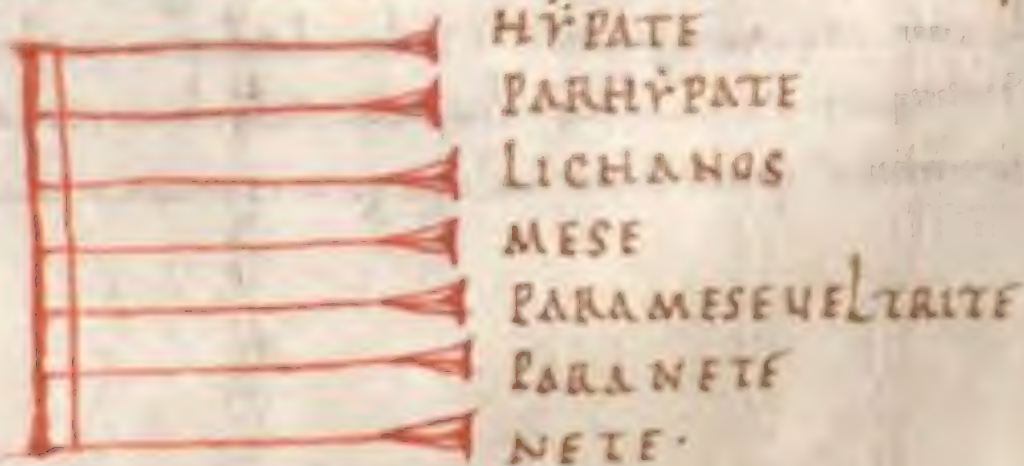 HẎPATE
PARHẎPATE
LICHANOS
MESE
PARAMESE UEL TRITE
PARANETE
NETE·